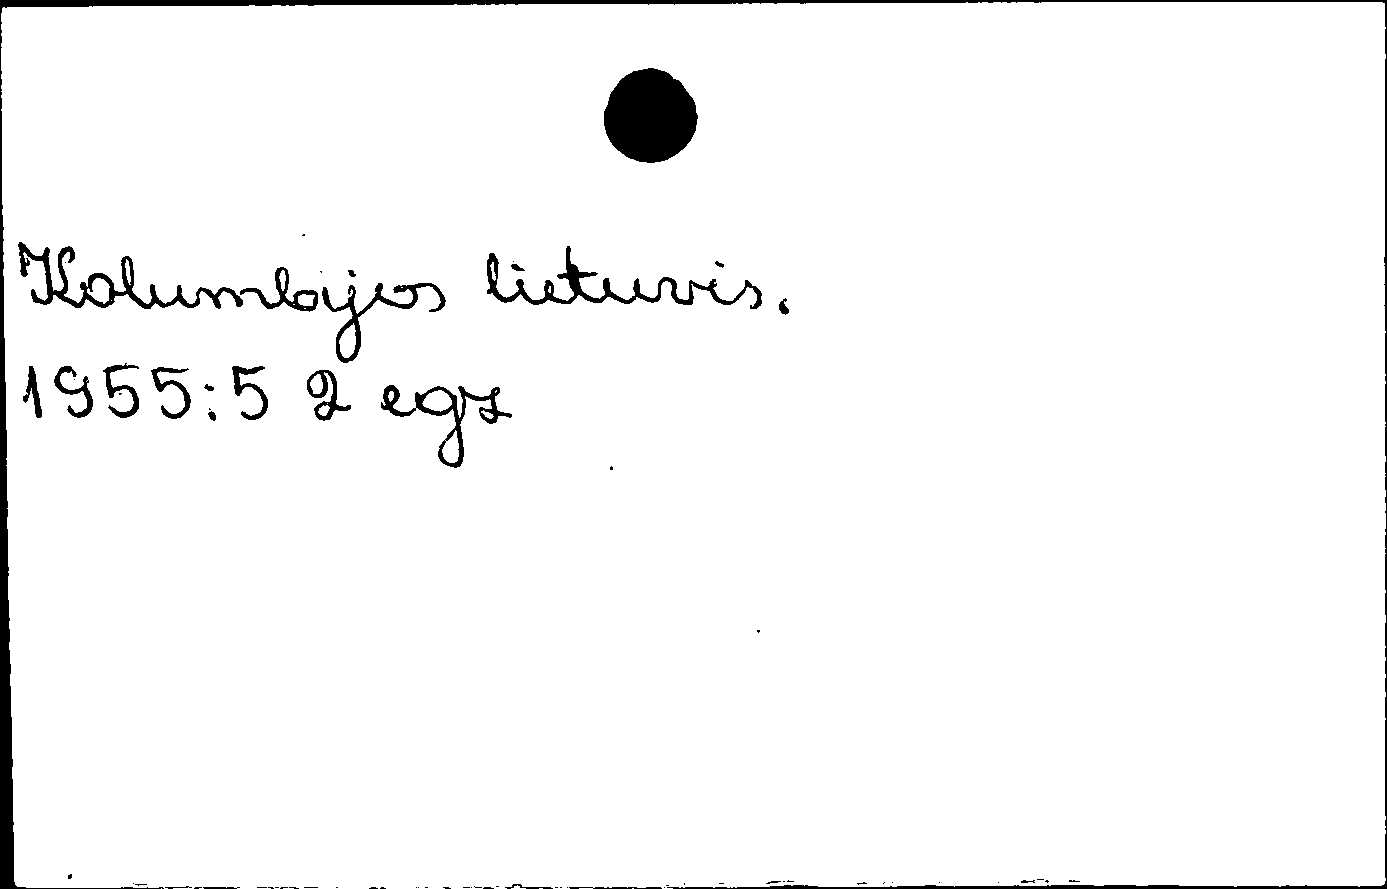 Kolumbijos lietuvis.
1955:5 2 egz